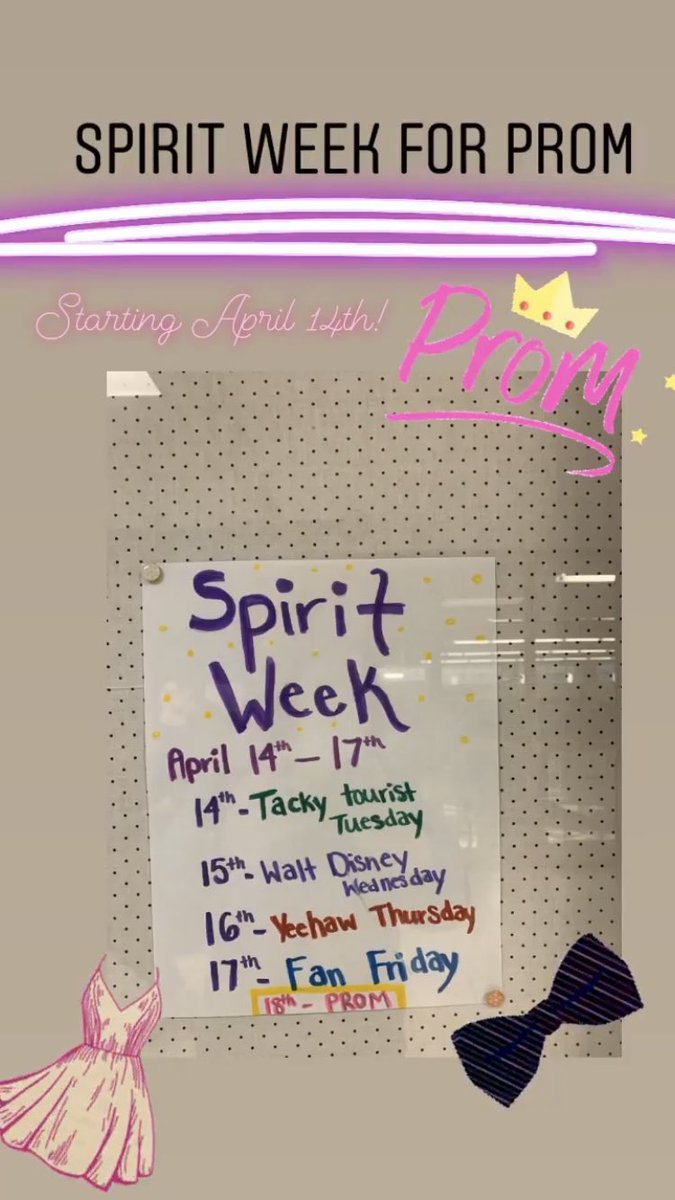 SPIRIT WEEK FOR PROM
Starting April 14th!
Prom
Spirit
Week
April 14th - 17th
14th - Tacky tourist
Tuesday
15th - Walt Disney
Wednesday
16th - Yeehaw Thursday
17th - Fan Friday
18th - PROM